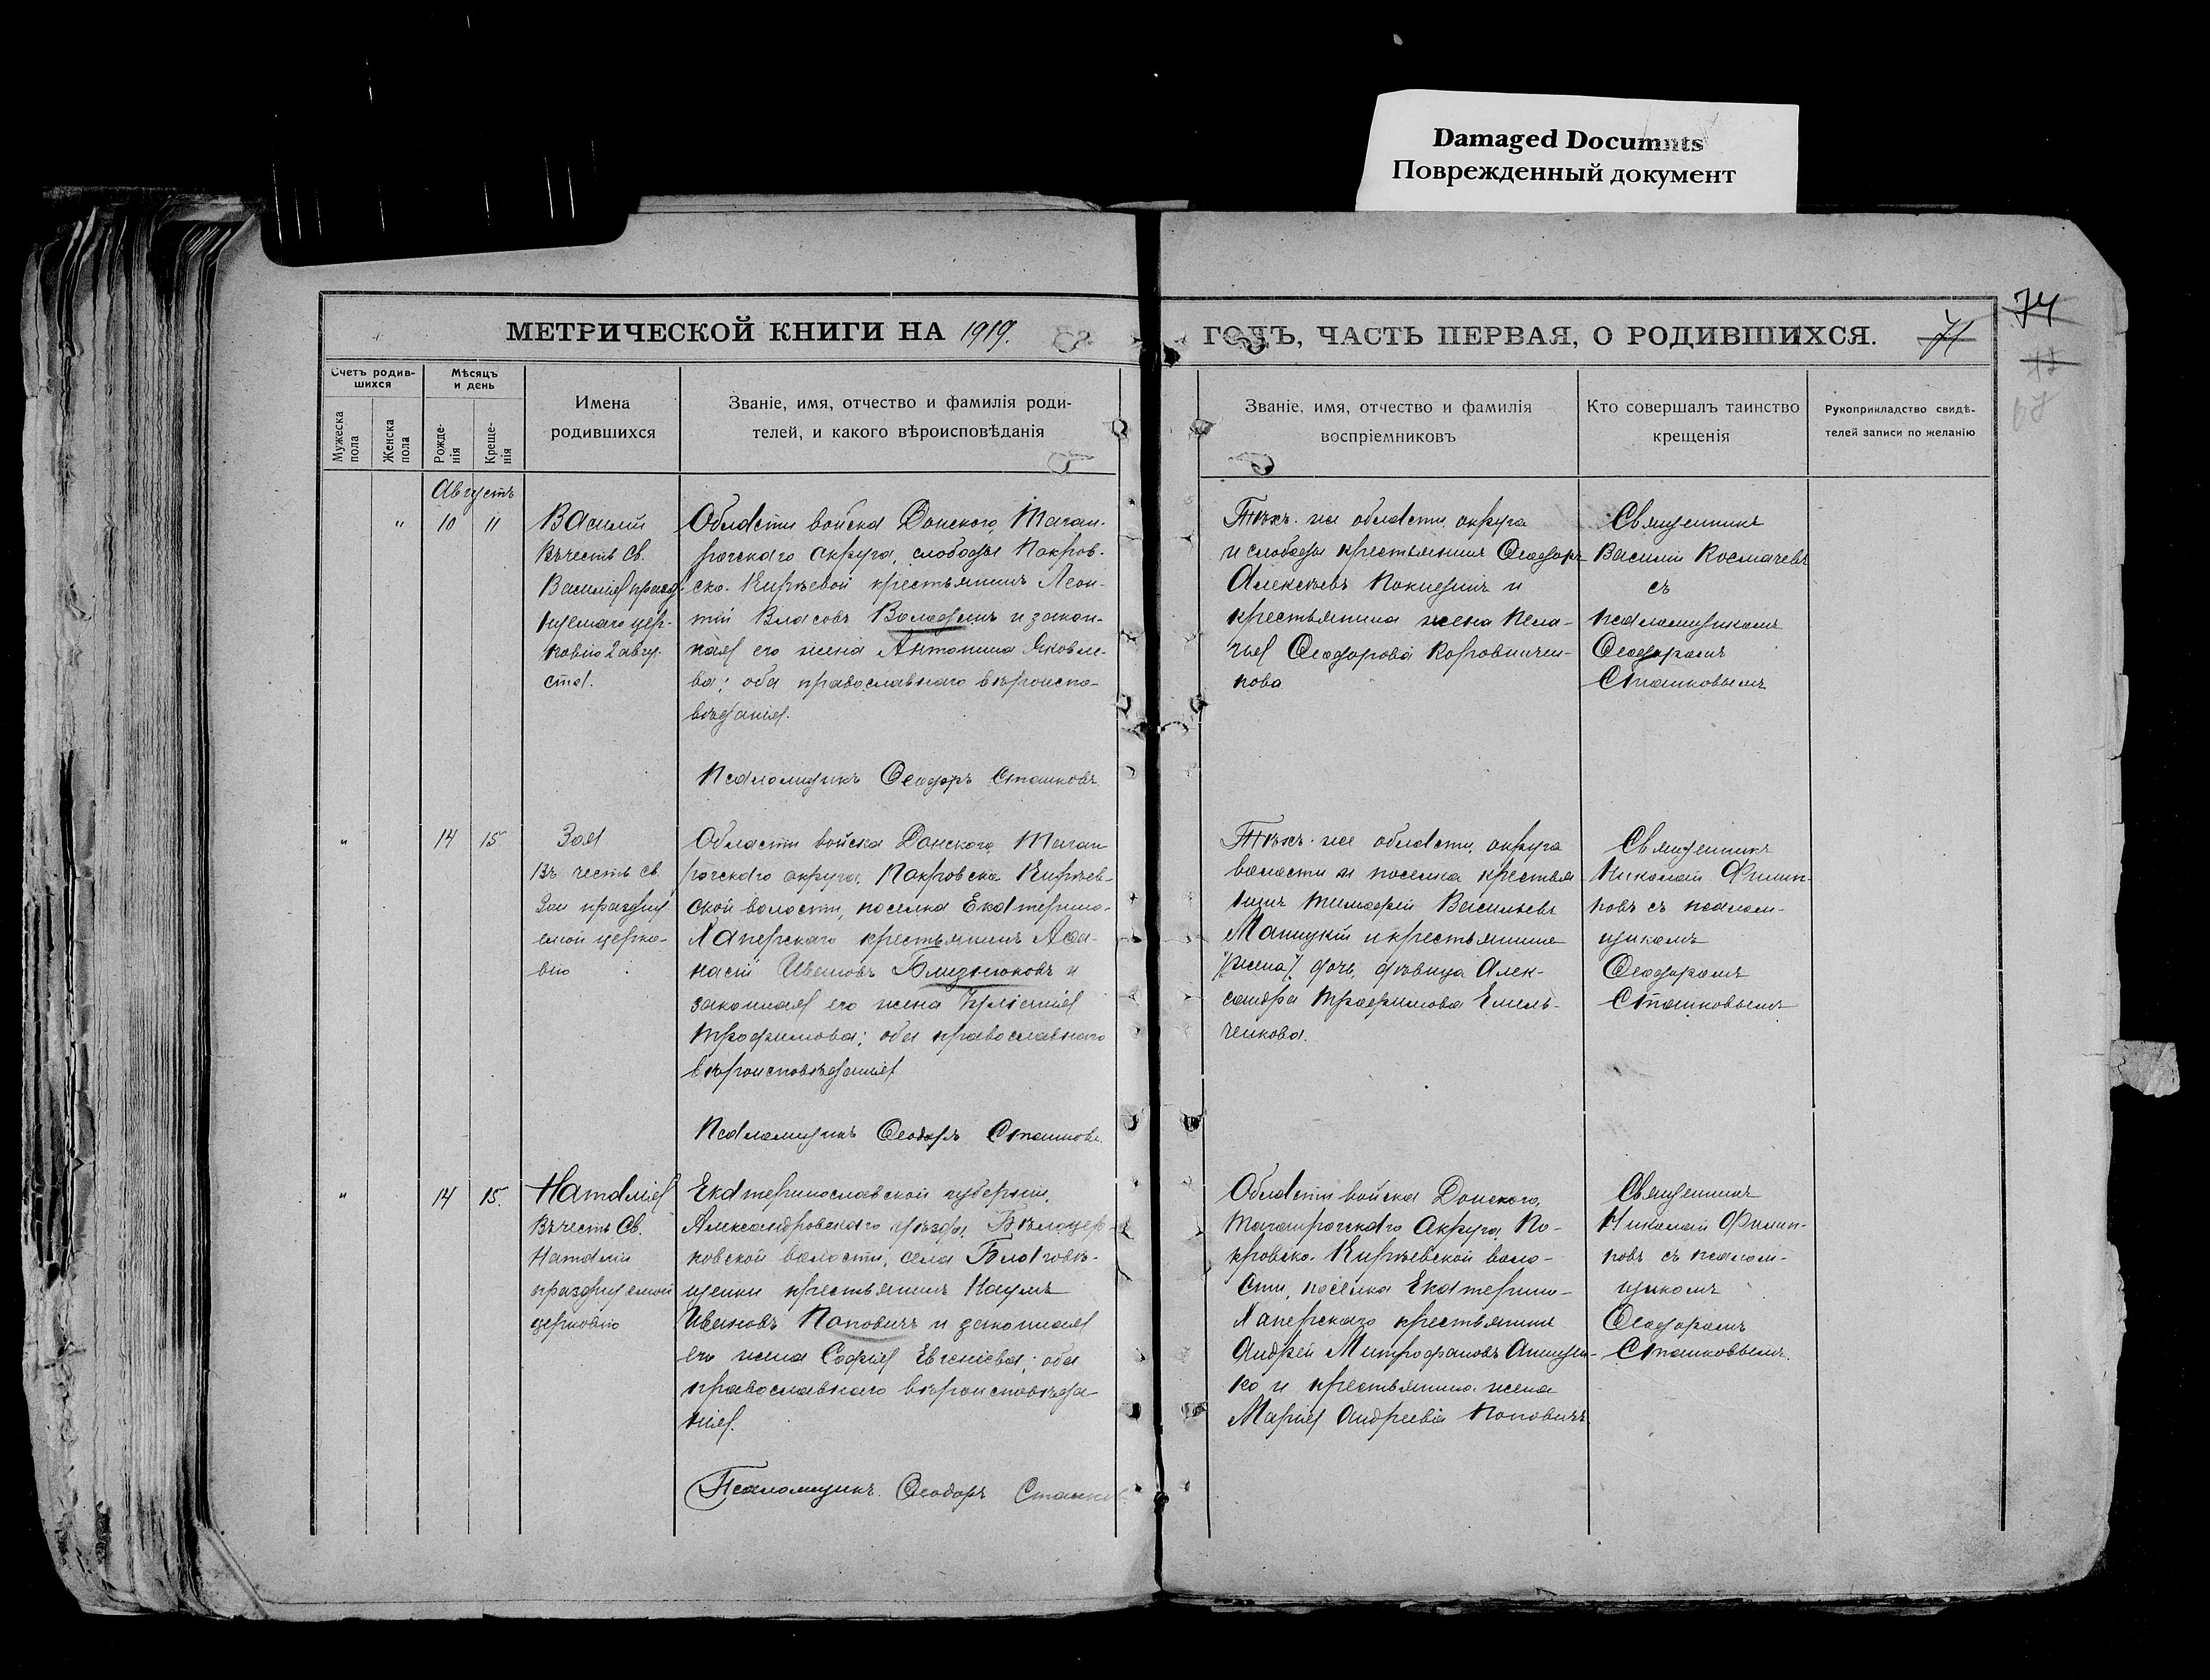 Damaged Documnts
Поврежденный документ
74
МЕТРИЧЕСКОЙ КНИГИ НА 1919.
ГОДЪ, ЧАСТЬ ПЕРВАЯ, О РОДИВШИХСЯ.
71
Счетъ родив-
шихся
Мужеска
пола
Женска
пола
Мѣсяцъ
и день
Рожде-
нія
Креще-
нія
Имена
родившихся
Званіе, имя, отчество и фамилія роди-
телей, и какого вѣроисповѣданія
Званіе, имя, отчество и фамилія
воспріемниковъ
Кто совершалъ таинство
крещенія
Рукоприкладство свидѣ-
телей записи по желанію
Августъ
" 10 11
Василій
Въ честь Св.
Василія празд-
нуемаго цер-
ковію 2 авгу-
ста.
Области войска Донского, Таган-
рогскаго округа, слободы Покров-
ско-Кирѣевой крестьянинъ Леон-
тій Власовъ Володинъ и закон-
ная его жена Антонина Яковле-
ва; оба православнаго вѣроиспо-
вѣданія.
Псаломщикъ Ѳеодоръ Сташковъ
Тѣхъ-же области, округа
и слободы крестьянинъ Ѳеодоръ
Алексѣевъ и
крестьянина жена Пела-
гія Ѳеодорова Коровничен-
кова
Священникъ
Василій Космачевъ
съ
псаломщикомъ
Ѳеодоромъ
Сташковымъ
" 14 15.
Зоя
Въ честь Св.
Зои праздну-
емой церко-
вію
Области войска Донского, Таган-
рогскаго округа, Покровско-Кирѣев-
ской волости, поселка Екатерино-
Хаперскаго крестьянинъ Аѳа-
насій Ивановъ Близнюковъ и
законная его жена Іуліанія
Трофимова; оба православнаго
вѣроисповѣданія
Псаломщикъ Ѳеодоръ Сташковъ
Тѣхъ-же области, округа
волости и поселка крестья-
нинъ Тимофей Васильевъ
Маницкій и крестьянина
/жена/ дочь, дѣвица Алек-
сандра Трофимова Емель-
ченкова.
Священникъ
Николай Филип-
повъ съ псалом-
щикомъ
Ѳеодоромъ
Сташковымъ
" 14 15.
Наталія
Въ честь Св.
Наталіи
празднуемой
церковію
Екатеринославской губерніи,
Александровскаго уѣзда, Бѣлоцер-
ковской волости, села Благовѣ-
щенки крестьянинъ Наумъ
Ивановъ Поповичъ и законная
его жена Софія Евгеніева; оба
православнаго вѣроисповѣда-
нія.
Псаломщикъ Ѳеодоръ Сташков
Области войска Донского,
Таганрогскаго округа, По-
кровско-Кирѣевской воло-
сти, посёлка Екатерино-
Хаперскаго крестьянинъ
Андрей Митрофановъ Онищен-
ко и крестьянина жена
Марія Андреева Поповичъ
Священникъ
Николай Филип-
повъ съ псалом-
щикомъ
Ѳеодоромъ
Сташковымъ.